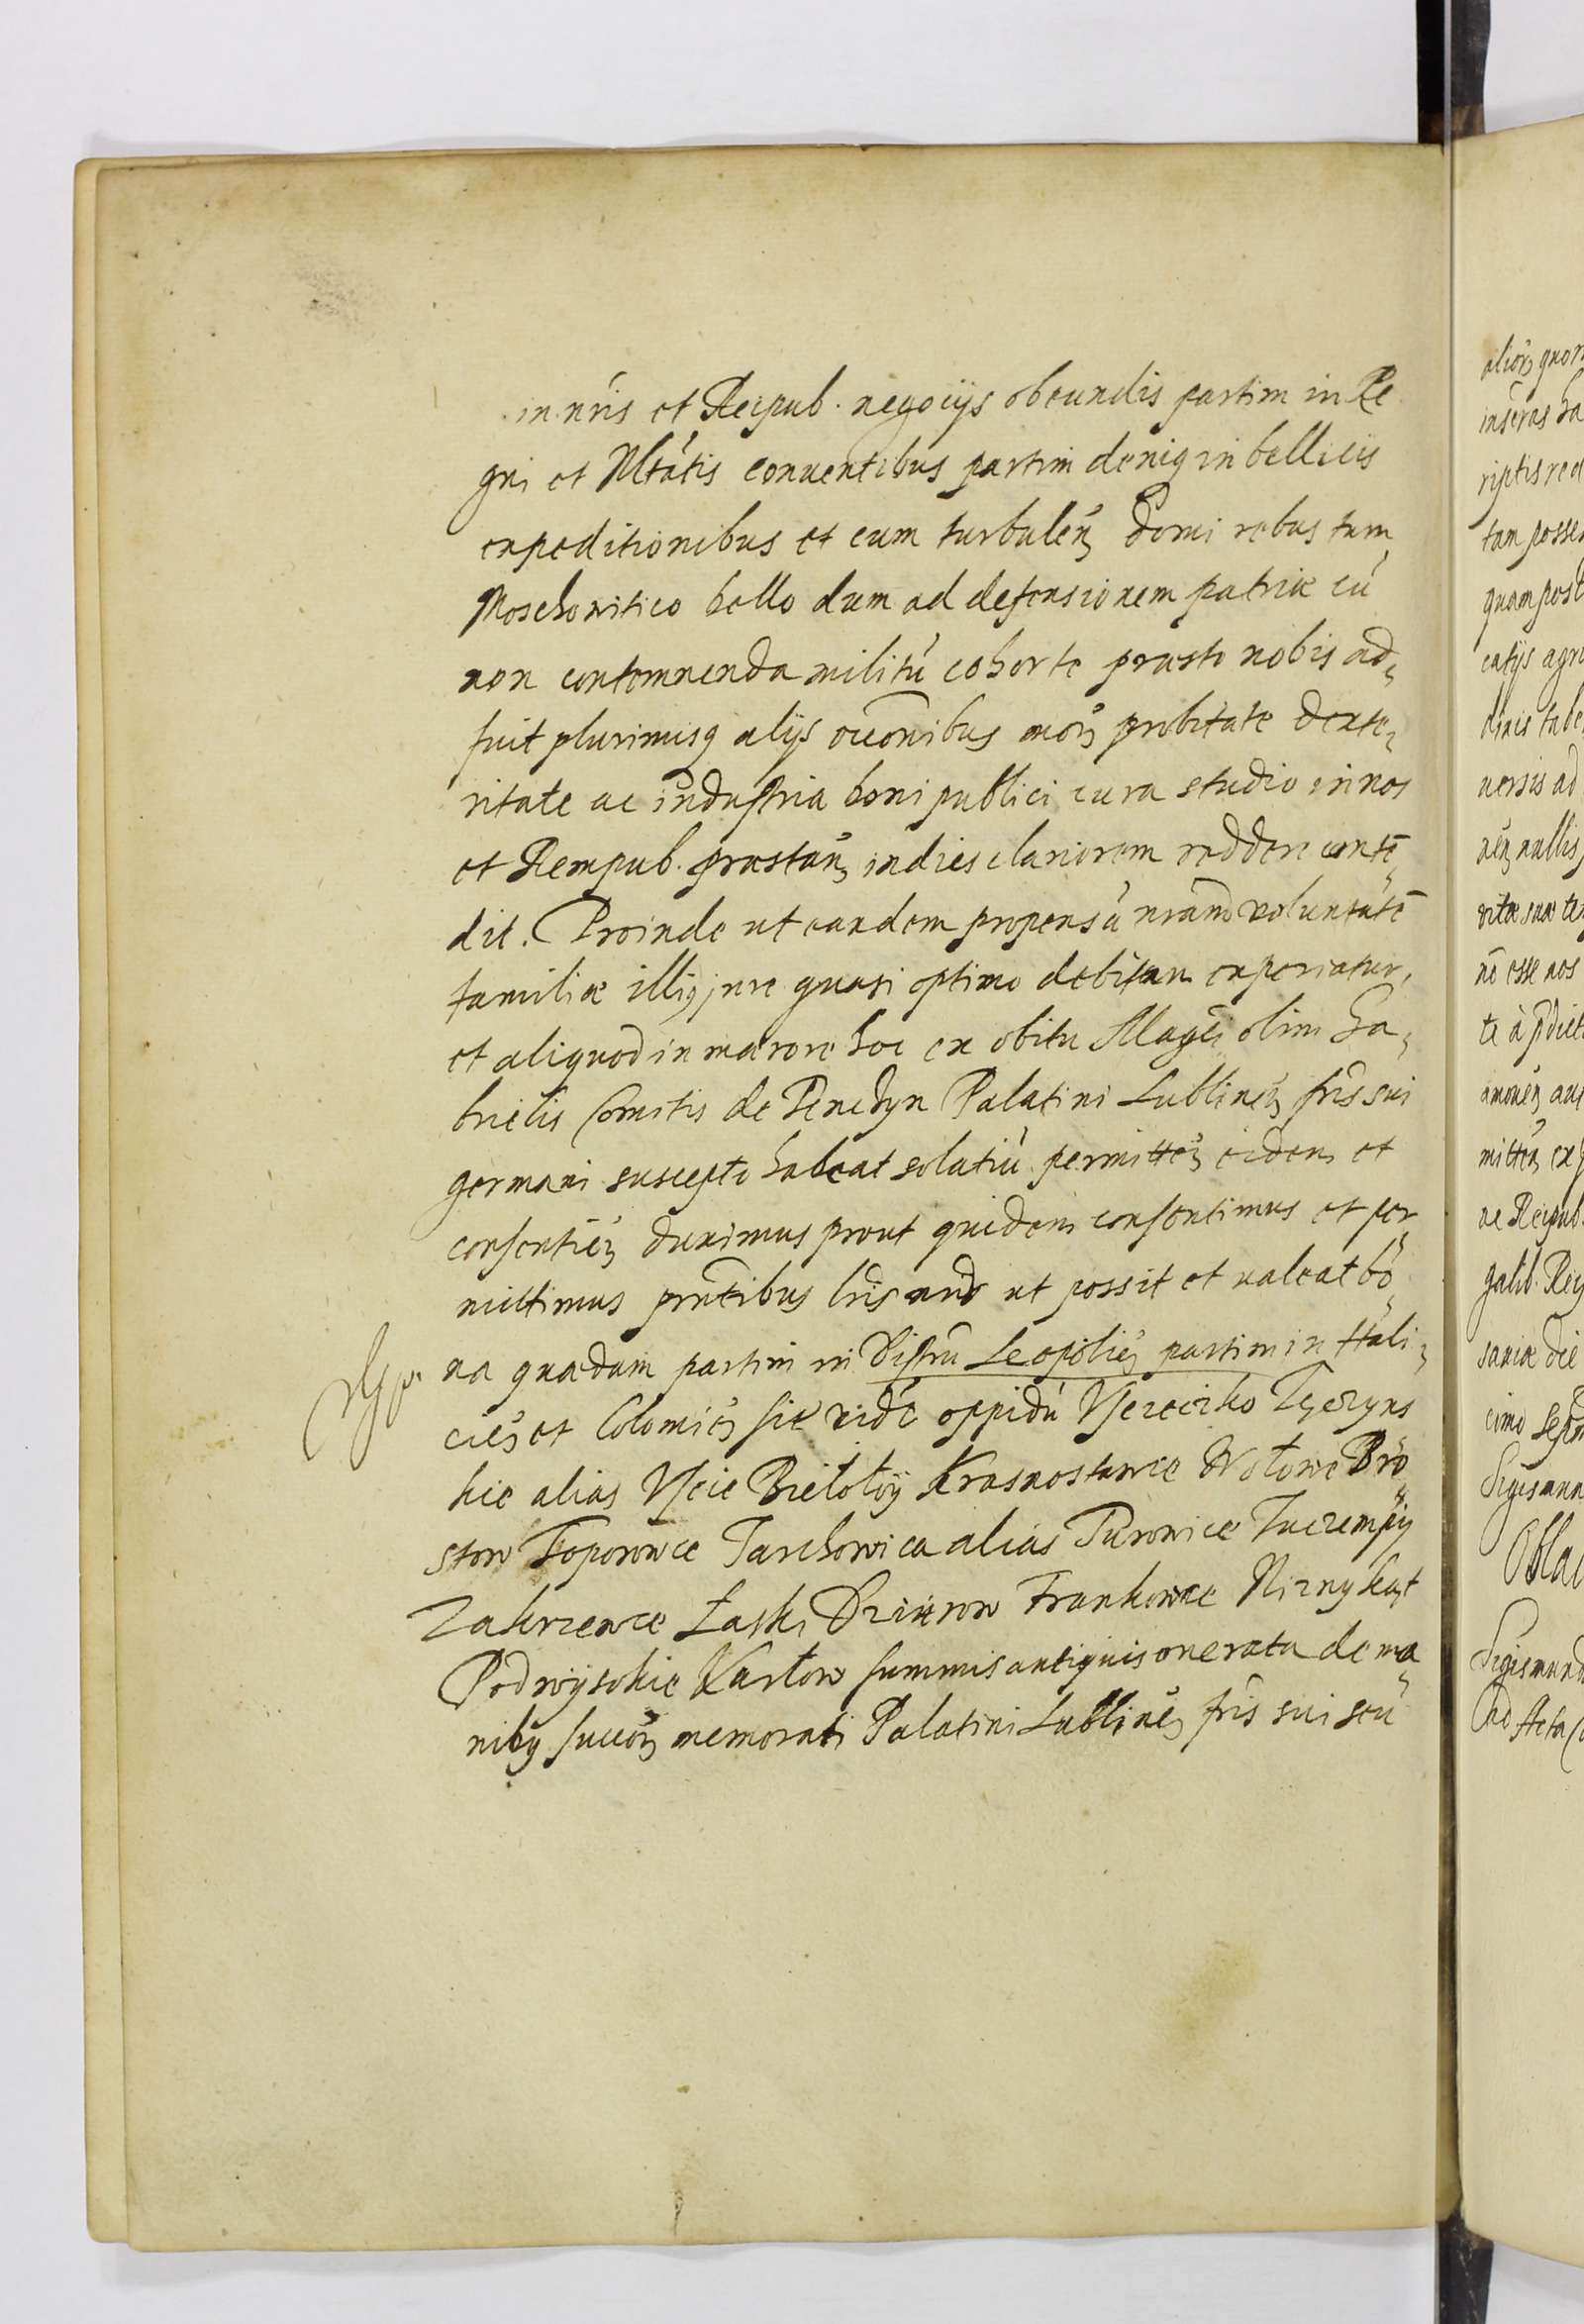 in nris et Reipub. negocijs obeundis partim in Re
gni et Mltatis conuentibus partim deniq in bellicis
expeditionibus et cum turbulen domi rebus tum
Moschowitico bello dum ad defensionem patriæ cu
non contemnenda militu cohorte præsto nobis ad
fuit plurimisq alijs occonibus mor probitate dexte
ritate ac industria boni publici cura studio in nos
et Rempub. præstan indies clariorem reddere conte
dit. Proinde ut eandem propensa nram voluntate
familiæ illiq jure quasi optimo debitam experiatur,
et aliquod in mærore hoc ex obitu Magci olim Ga
brielis Comitis de Tenczyn Palatini Lublinen fris sui
germani suscepto habeat solatiu permitten eidem et
consentien duximus prout quidem consentimus et per
mittimus prntibus lris nris ut possit et valeat bo
na quædam partim in distru Leopolien partim in Hali
cien et Colomien sit vidc oppidu Vscieczko Tęczyns
kie alias Vscie Bieloloij Krasnostawce Wolowe Bro
stow Toporowce Tarchowica alias Turowice Tuczempij
Zakrzewce Laski Dziurow Frankowce Niznykąt
Podwijsokie Karlow summis antiquis onerata de ma
nibq succor memorati Palatini Lublinen fris sui seu
alior quor
inseras ha
riptis red
tam posses
quam post
catijs agri
nersis ad
nen nullis
vitæ suæ te
no esse nos
mitten ex
ac Reipub.
galib. Reg
saviæ die
cimo Sept
Sigismun
Oblat
Sigismund
Ad Acta